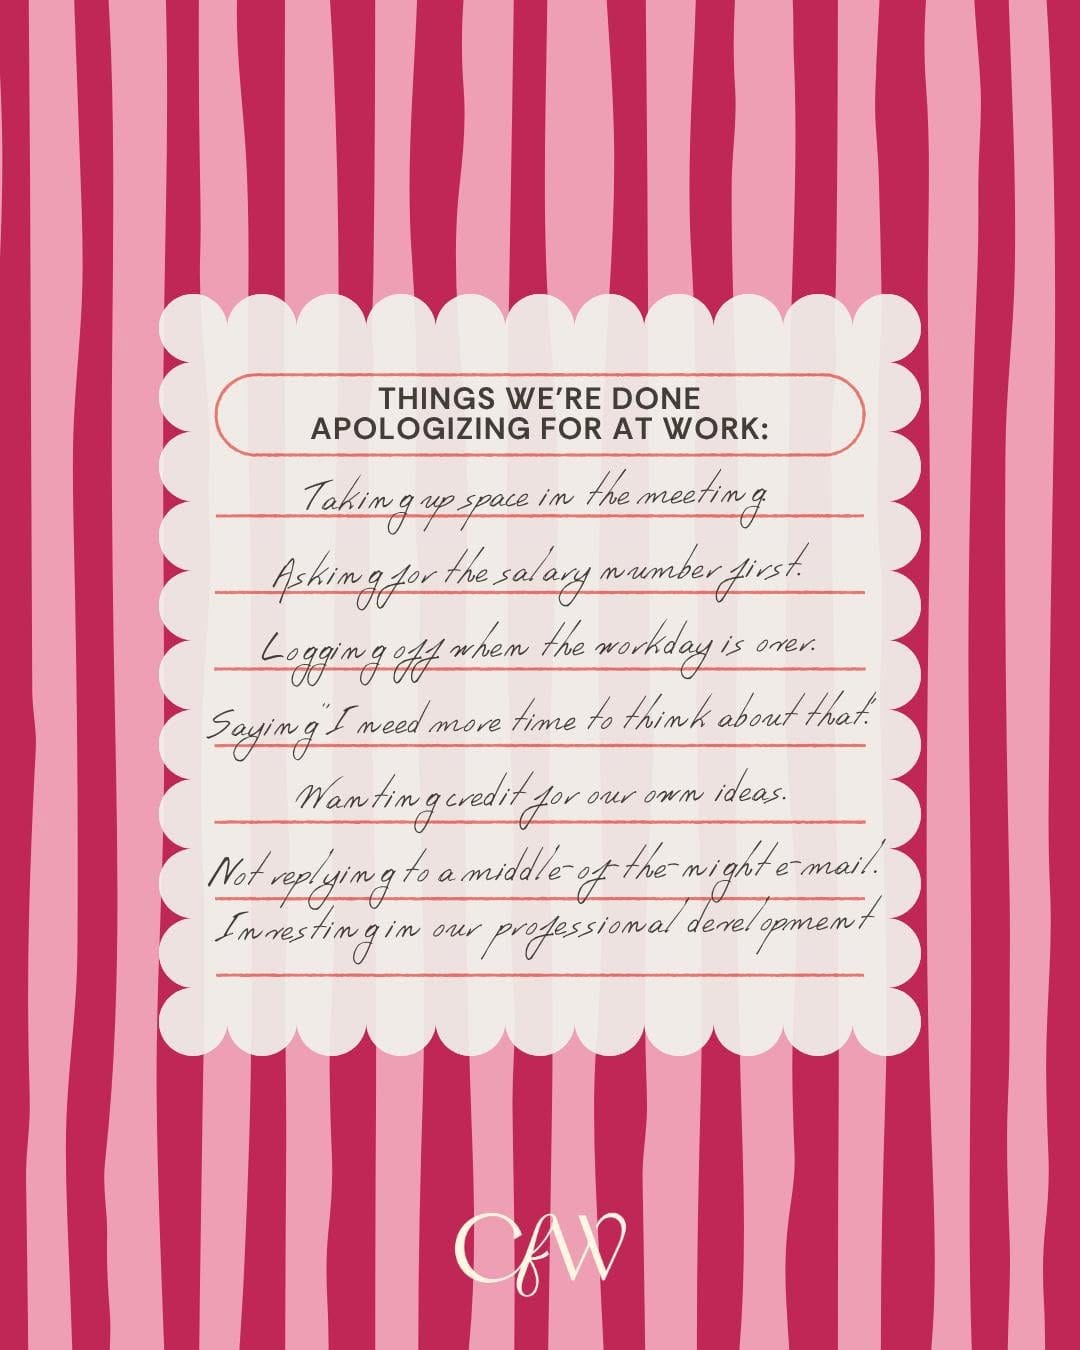 THINGS WE'RE DONE
APOLOGIZING FOR AT WORK:
Taking up space in the meeting.
Asking for the salary number first.
Logging off when the workday is over.
Saying "I need more time to think about that."
Wanting credit for our own ideas.
Not replying to a middle-of-the-night e-mail.
Investing in our professional development
CfW